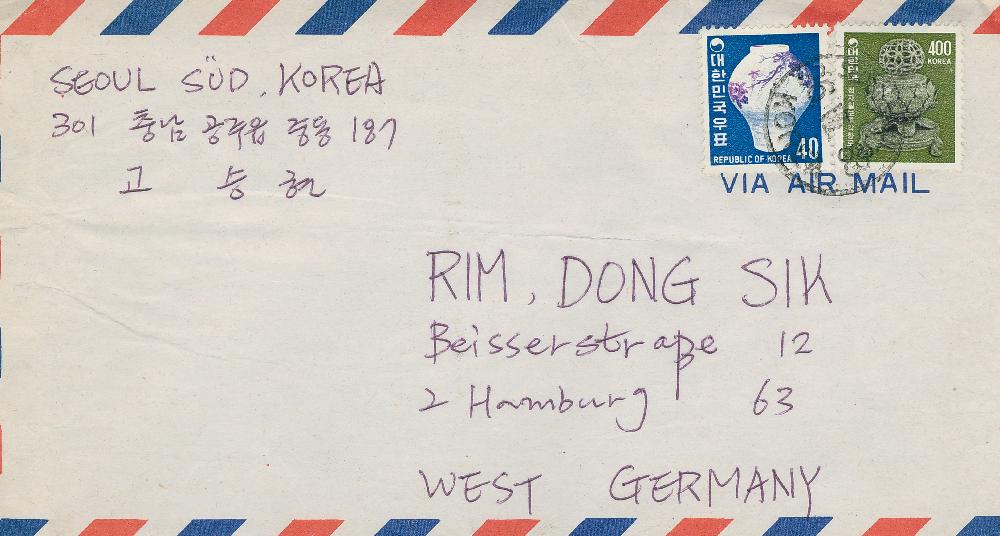 SEOUL SÜD, KOREA
301 충남 공주읍 중동 187
고 승 현
대한민국우표
40
REPUBLIC OF KOREA
400
KOREA
대한민국
VIA AIR MAIL
RIM, DONG SIK
Beisserstraße 12
2 Hamburg 63
WEST GERMANY